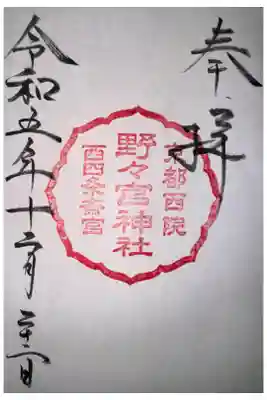 奉拝
京都西院
野々宮神社
西四条斎宮
令和五年十二月二十二日